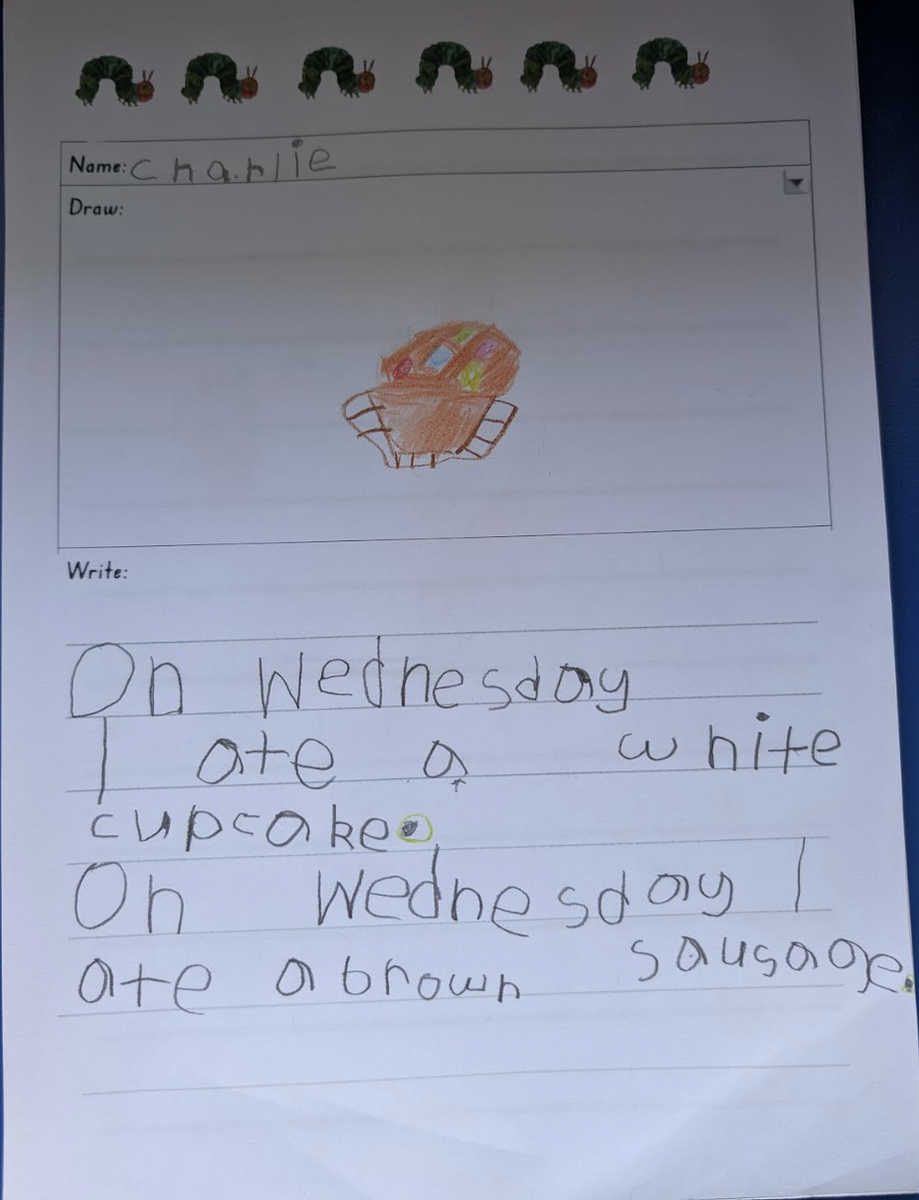 Name: Charlie
Draw:
Write:
On Wednesday
I ate a white
cupcake.
On Wednesday I
ate a brown sausage.